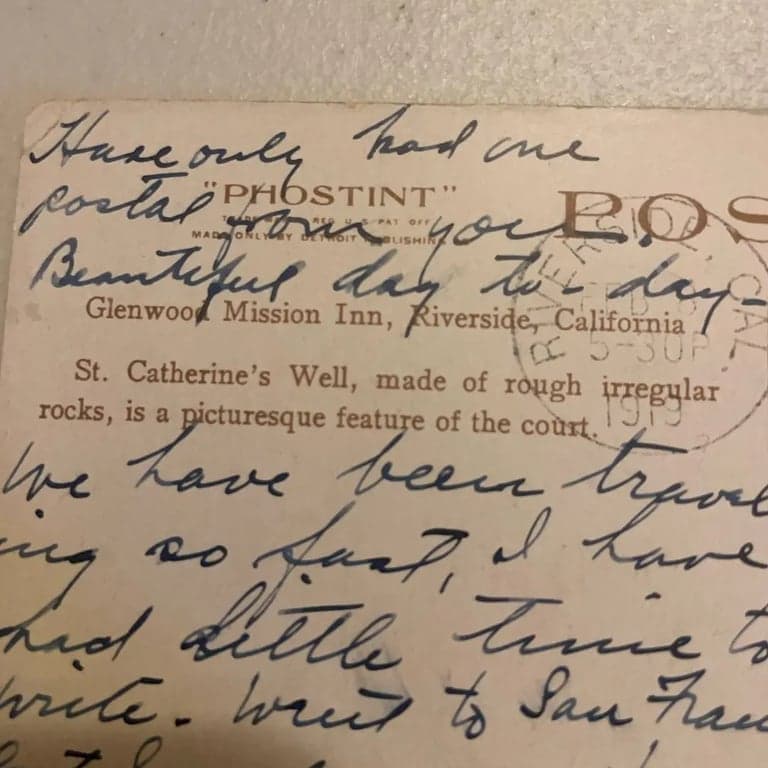 Have only had one
"PHOSTINT"
POS
postal from you.
TRADE MARK REG U S PAT OFF
MADE ONLY BY DETROIT PUBLISHING
Beautiful day to-day-
Glenwood Mission Inn, Riverside, California
RIVERSIDE, CAL
FEB
5-30P
1919
St. Catherine's Well, made of rough irregular
rocks, is a picturesque feature of the court.
We have been travel
ing so fast, I have
had little time to
write. Went to San Fran